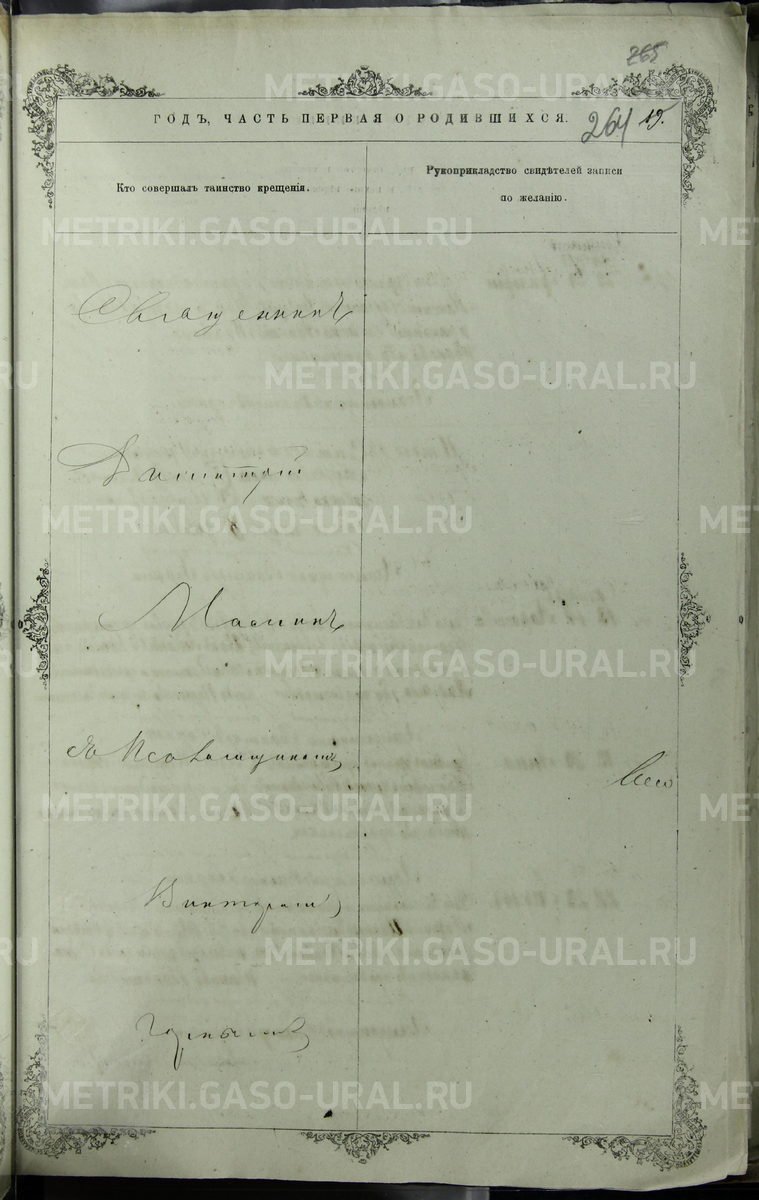 265
ГОДЪ, ЧАСТЬ ПЕРВАЯ О РОДИВШИХСЯ. 264 19.
Кто совершалъ таинство крещенія.
Рукоприкладство свидѣтелей записи
по желанію.
Священникъ
Димитрій
Масминъ
съ Псаломщикомъ
Викторомъ
METRIKI.GASO-URAL.RU